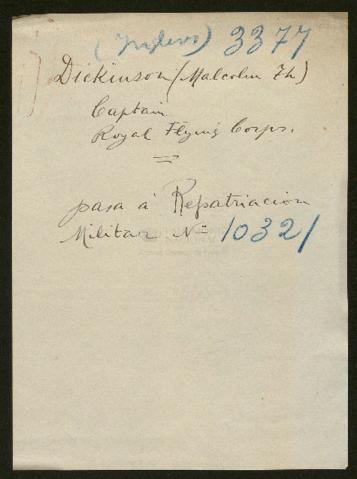 (Ingleses) 3377
Dickinson (Malcolm Th)
Captain
Royal Flying Corps.
pasa á Repatriacion
Militar Nº 10321